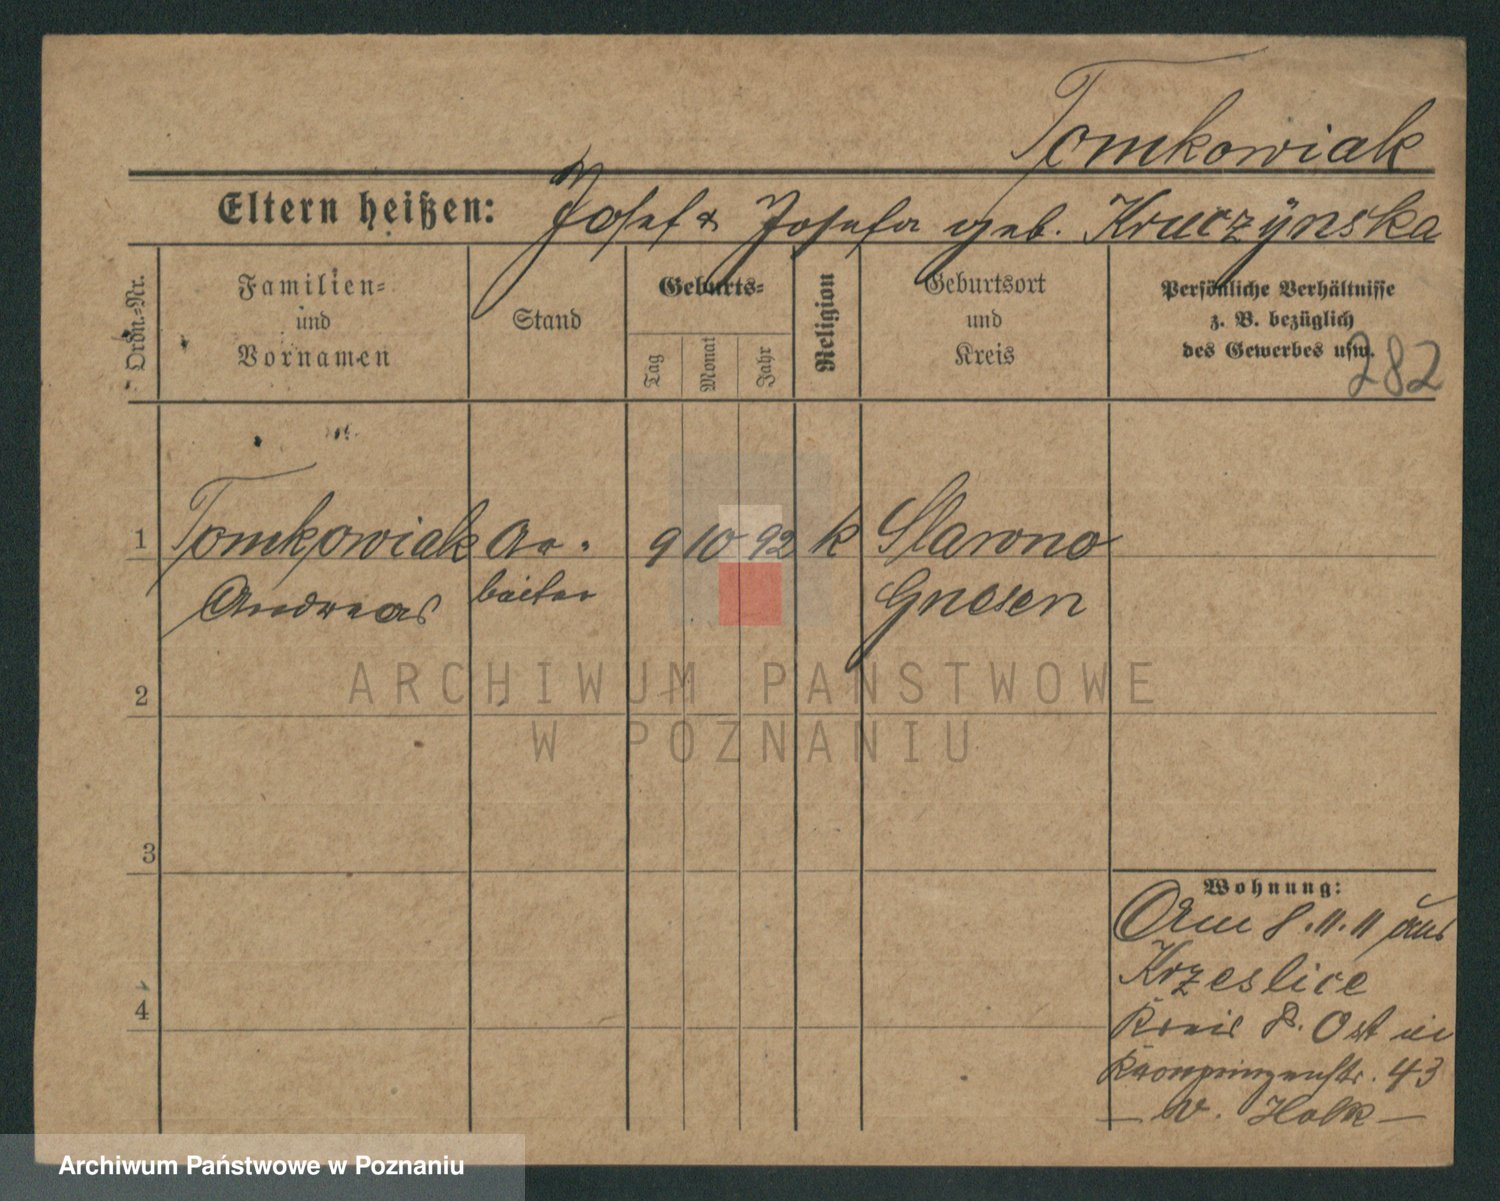 Tomkowiak
Eltern heißen: Josef & Josefa geb. Kruczÿnska
Ordn.-Nr.
Familien-
und
Vornamen
Stand
Geburts-
Tag
Monat
Jahr
Religion
Geburtsort
und
Kreis
Persönliche Verhältnisse
z. B. bezüglich
des Gewerbes usw.
282
1 Tomkowiak Ar- 9 10 92 k Slawno
Andreas beiter Gnesen
2
3
4
Wohnung:
Am 8.11.11 aus
Krzeslice
Kreis P. Ost in
Kronprinzenstr. 43
— W. Holk —
ARCHIWUM PAŃSTWOWE
W POZNANIU
Archiwum Państwowe w Poznaniu